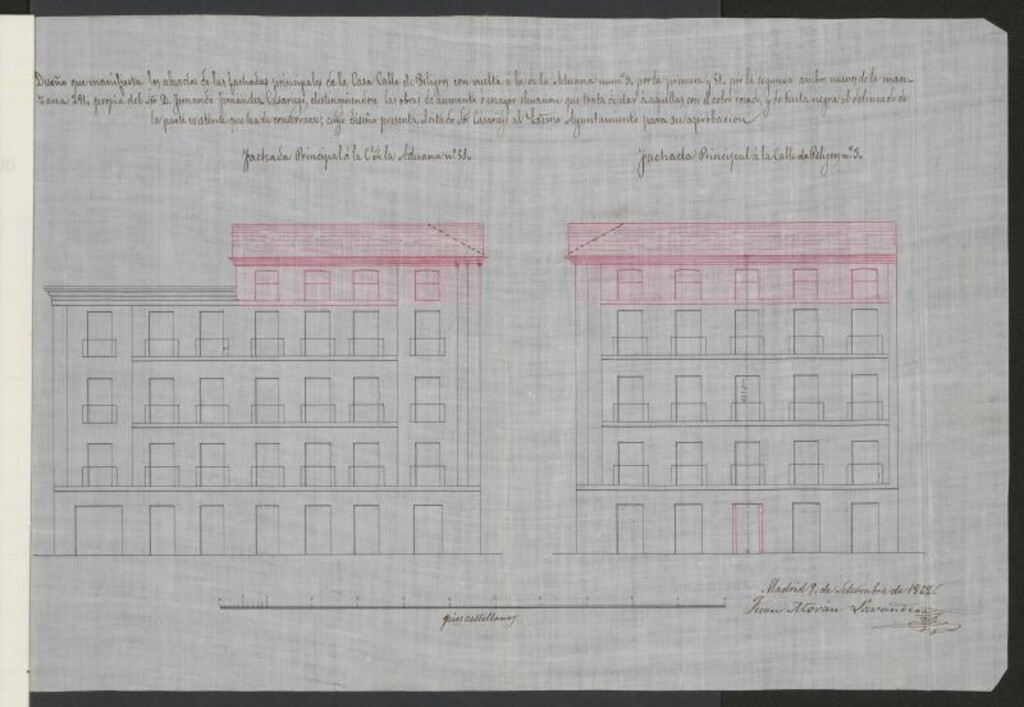 Diseño que manifiesta los alzados de las fachadas principales de la Casa Calle de Peligros con vuelta á la de la Aduana num.º 3, por la primera y 51, por la segunda ambos nuevos de la man-
zana 291, propia del Sr. D. Fernando Fernandez Casariego, distinguiendose las obras de aumento ó mayor elevacion que trata de dar á aquellas con el color rosado, y de tinta negra el delineado de
la parte existente que ha de conservarse; cuyo diseño presenta dicho Sr. Casariego al Excmo Ayuntamiento para su aprobacion
Fachada Principal á la C. de la Aduana nº 51.
Fachada Principal á la Calle de Peligros nº 3.
Madrid 9, de Setiembre de
Juan Moran Lavandera
pies castellanos